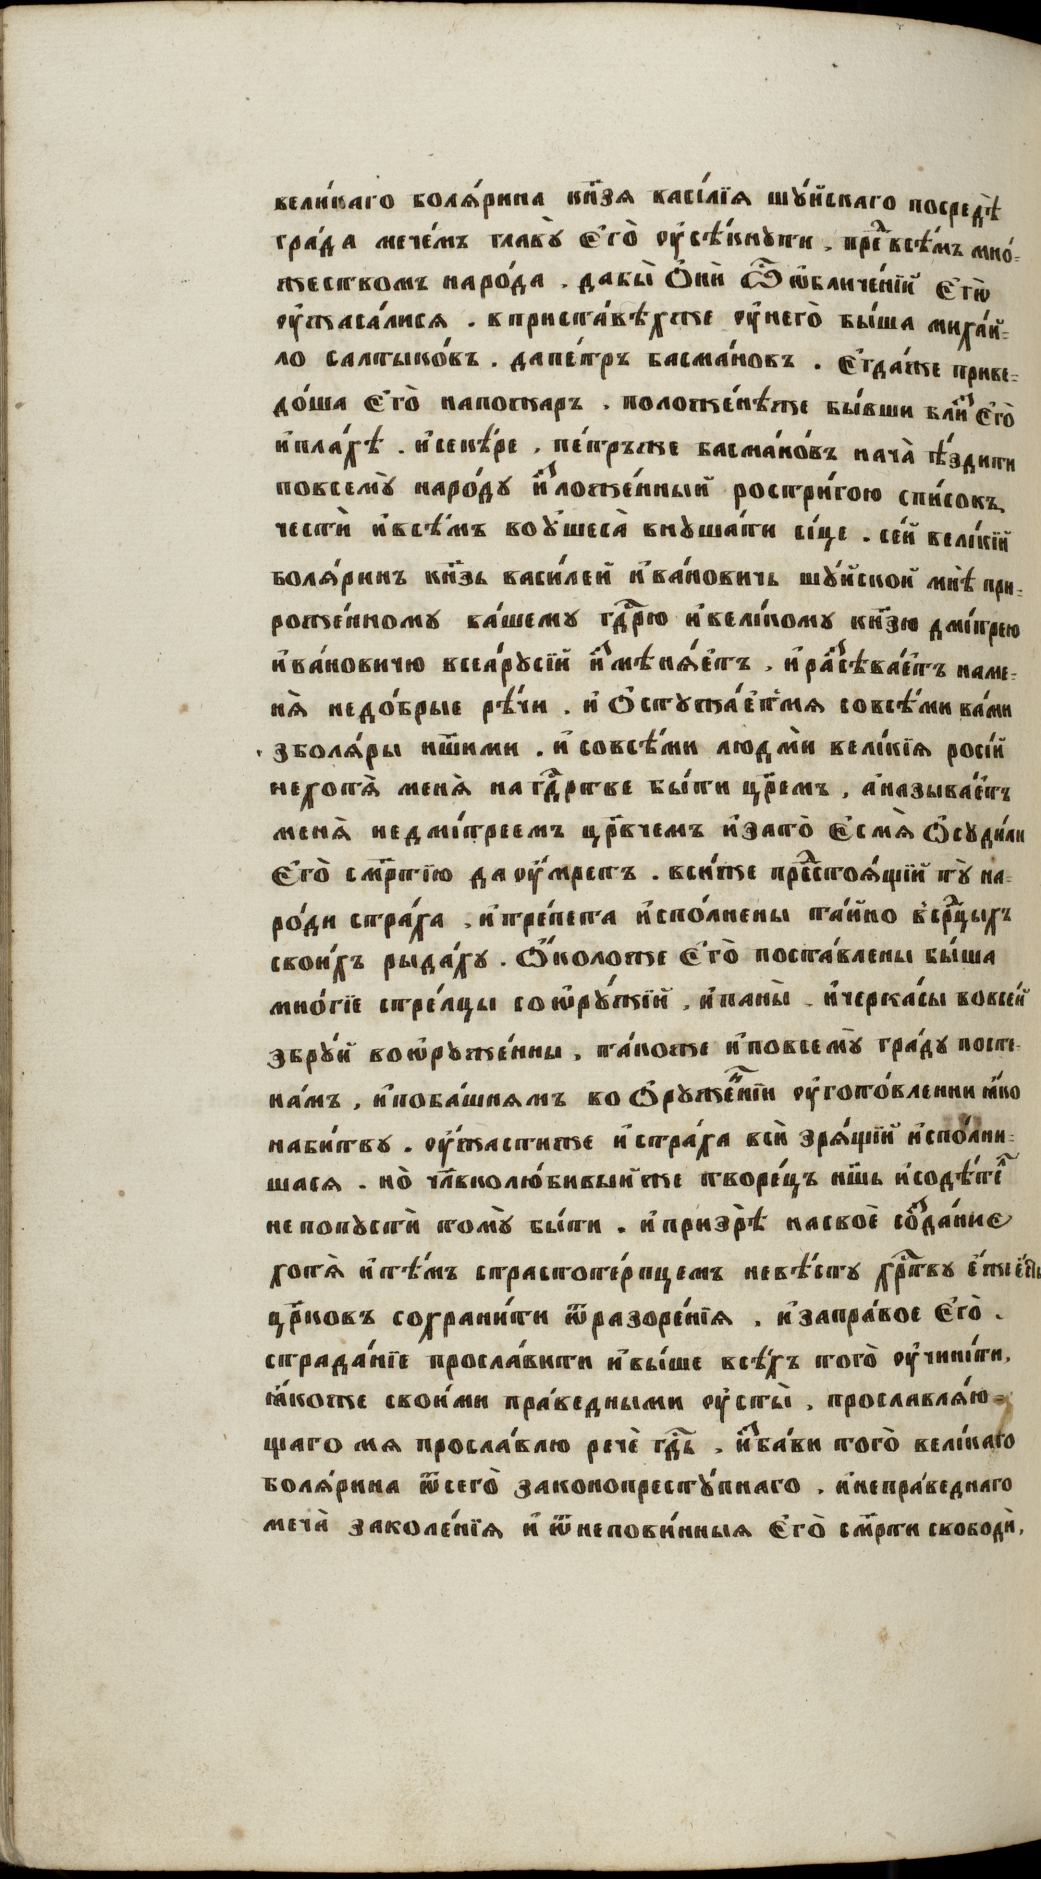 вели́каго боля́рина кн҃зя васі́лїя шꙋ́йскаго посредѣ̀
гра́да мече́мъ главꙋ̀ є҆го̀ оу҆сѣ́кнꙋти . пре́д всѣ́мъ мно́-
жеством наро́да . дабы̀ ѻ҆нѝ ѿ ѡ҆бличе́нїй є҆гѡ̀
оу҆жаса́лися . в приста́вѣхже оу҆него̀ бы́ша миха́й-
ло салтыко́въ . да пе́тръ басма́новъ . є҆гда́же приве-
до́ша є҆го̀ на пожаръ . положе́нѣже бы́вши бли́з є҆го̀
и҆ пла́хѣ . и҆ секѣ́ре . пе́тръже басма́новъ нача̀ ѣ҆́здити
по всемꙋ̀ наро́дꙋ и҆зложе́нный ростри́гою спи́сокъ
честѝ и҆ всѣ́мъ во оу҆шеса̀ внꙋша́ти сі́це . се́й вели́кїй
боля́ринъ кн҃зь васи́лей и҆ва́новичь шꙋ́йской мнѣ̀ при-
роже́нномꙋ ва́шемꙋ гдⷭ҇рю и҆ вели́комꙋ кн҃зю дми́трею
и҆ва́новичю всеа́рꙋсїй и҆змѣня́етъ . и҆ разсѣва́етъ на ме-
ня̀ недо́брые рѣ́чи . и҆ ѻ҆сꙋжа́етмя совсѣ́ми ва́ми
з боля́ры нш҃ими . и҆ совсѣ́ми людмѝ вели́кїя росі́й
не хотя̀ меня̀ на гдⷭ҇рстве бы́ти цр҃емъ , а҆ называ́етъ
меня̀ не дми́треемъ цр҃вчемъ и҆ зато̀ є҆смя̀ ѻ҆сꙋди́ли
є҆го̀ см҃ртїю да оу҆́мретъ . вси́же предстоя́щїй тꙋ̀ на-
ро́ди стра́ха , и҆ тре́пета и҆спо́лнены та́йно в срⷣцыхъ
свои́хъ рыда́хꙋ . Ѻ҆́коложе є҆го̀ поста́влены бы́ша
мно́гїе стре́лцы со ѡ҆рꙋ́жїй , и҆ паны̀ . и҆ черка́сы во всей
збрꙋ́й во ѡ҆рꙋже́нны , та́коже и҆ по всемꙋ̀ гра́дꙋ по сте-
на́мъ , и҆ по ба́шнямъ во ѻ҆рꙋже́нїи оу҆гото́вленни ꙗ҆́ко
на би́твꙋ . оу҆́жастиже и҆ стра́ха всѝ зря́щїй и҆спо́лни-
шася . но̀ чл҃вколю́бивыйже творе́цъ нш҃ь и҆ содѣ́тель
не попꙋстѝ томꙋ̀ бы́ти . и҆ призрѣ̀ на своѐ созда́ние
хотя̀ и҆ тѣ́мъ страстоте́рпцемъ невѣ́стꙋ хрⷭ҇твꙋ є҆́же є҆́сть
цр҃ковъ сохрани́ти ѿ разоре́нїя , и҆ за пра́вое є҆го̀ .
страда́нїе просла́вити и҆ вы́ше всѣ́хъ того̀ оу҆чини́ти ,
ꙗ҆́коже свои́ми пра́ведными оу҆сты̀ , прославля́ю-
щаго мя просла́влю речѐ гдⷭ҇ь , и҆зба́ви того̀ вели́каго
боля́рина ѿ сего̀ законопрестꙋ́пнаго , и҆ непра́веднаго
меча̀ заколе́нїя и҆ ѿ непови́нныя є҆го̀ см҃рти свободѝ ,